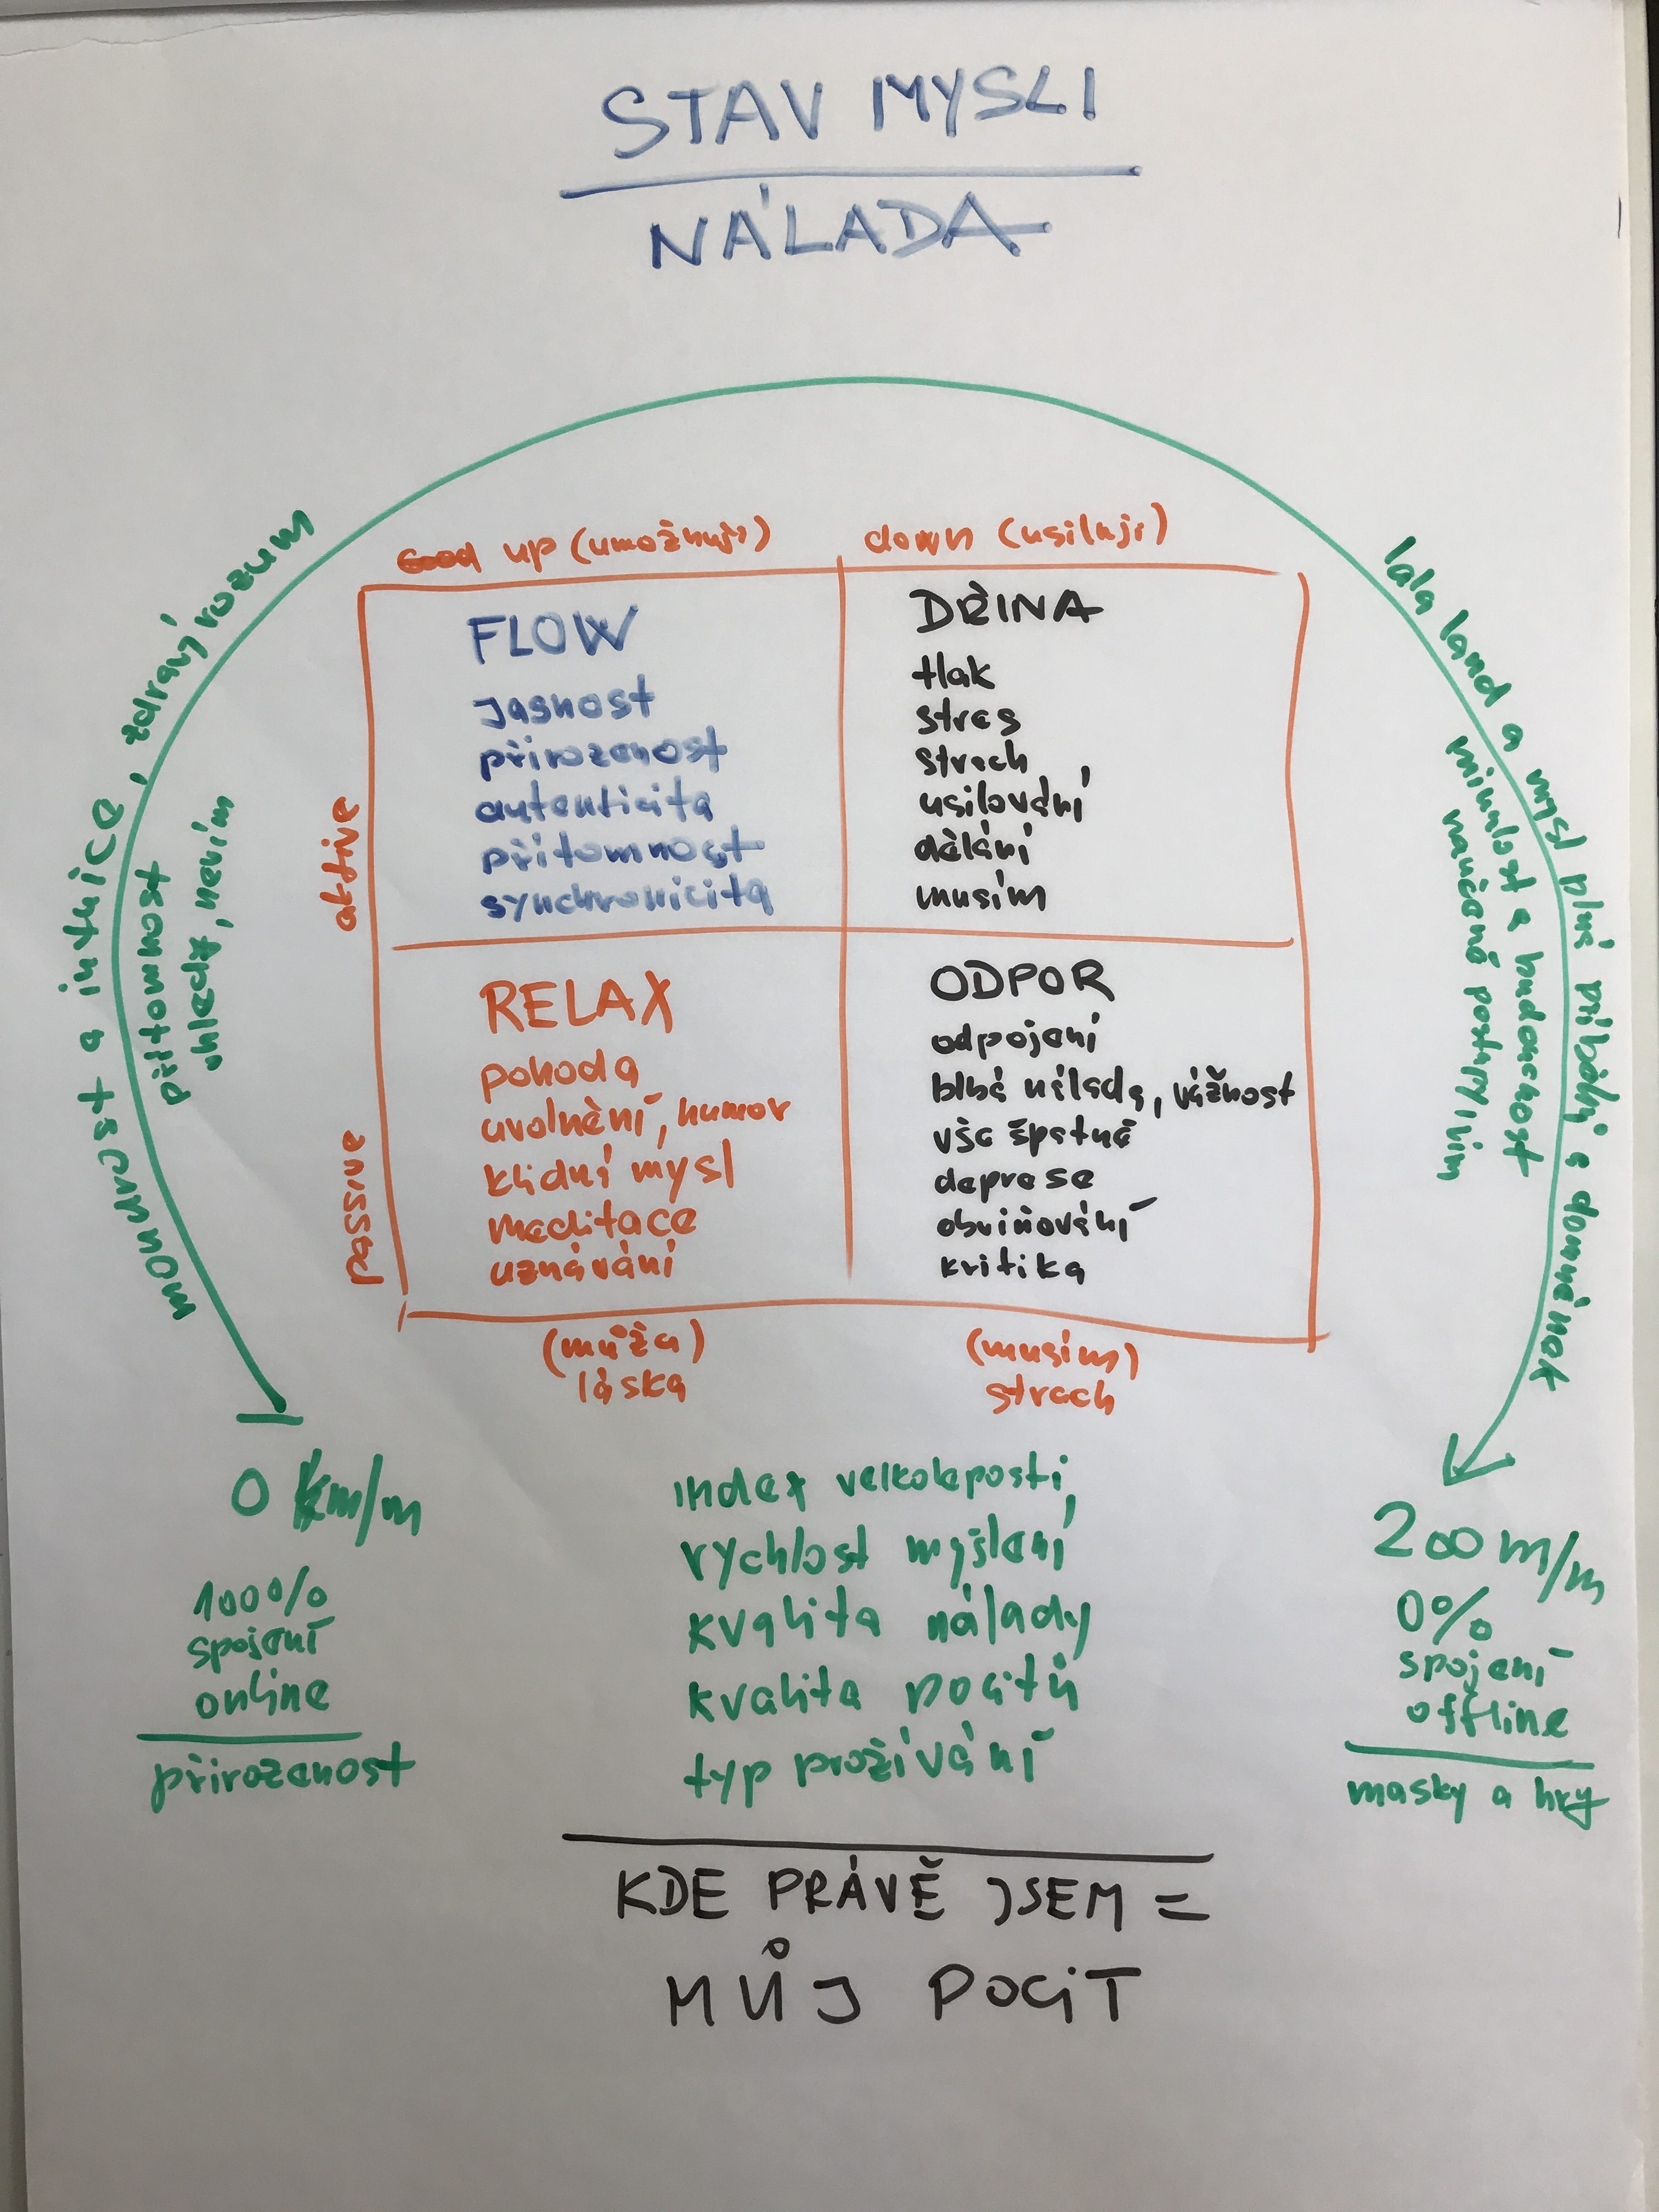 STAV MYSLI
NÁLADA
moudrost a intuice, zdravý rozum
přítomnost
vhledy, nevím
lala land a mysl plus příběhy a domněnek
minulost a budoucnost
naučené postupy/vím
Good up (umožňuji)
down (usiluji)
aktive
passive
FLOW
jasnost
přirozenost
autenticita
přítomnost
synchronicita
DŘINA
tlak
stres
strach
usilování
dělání
musím
RELAX
pohoda
uvolnění, humor
klidní mysl
meditace
uznávání
ODPOR
odpojení
blbá nálada, vážnost
vše špatně
deprese
obviňování
kritika
(můžu)
láska
(musím)
strach
0 km/m
100%
spojení
online
přirozenost
index velkoleposti,
rychlost myšlení
kvalita nálady
kvalita pocitů
typ prožívání
200 m/m
0%
spojení
offline
masky a hry
KDE PRÁVĚ JSEM =
MŮJ POCIT